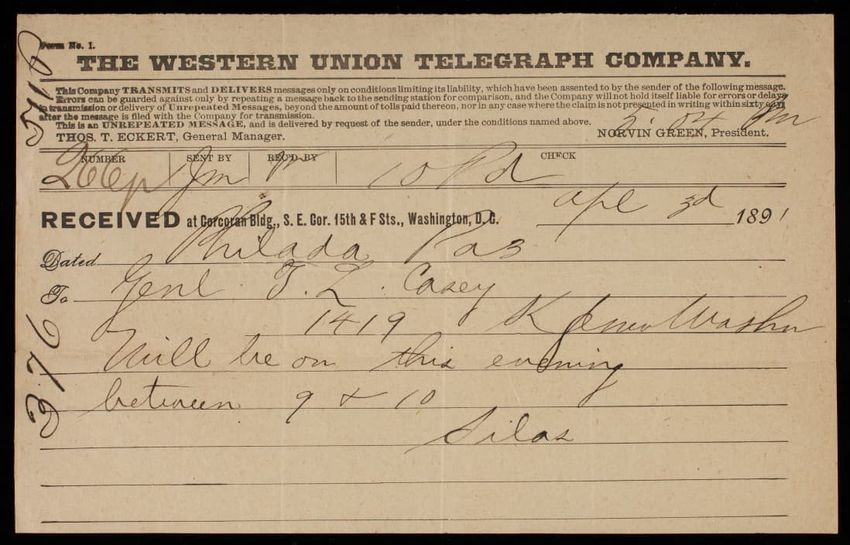 Form No. 1.
THE WESTERN UNION TELEGRAPH COMPANY.
This Company TRANSMITS and DELIVERS messages only on conditions limiting its liability, which have been assented to by the sender of the following message.
Errors can be guarded against only by repeating a message back to the sending station for comparison, and the Company will not hold itself liable for errors or delays
in transmission or delivery of Unrepeated Messages, beyond the amount of tolls paid thereon, nor in any case where the claim is not presented in writing within sixty days
after the message is filed with the Company for transmission.
This is an UNREPEATED MESSAGE, and is delivered by request of the sender, under the conditions named above.
THOS. T. ECKERT, General Manager.
NORVIN GREEN, President.
5:04 Pm
NUMBER SENT BY REC'D BY CHECK
Jm 10 Pd
RECEIVED at Corcoran Bldg., S. E. Cor. 15th & F Sts., Washington, D. C.
Apl 3d 1891
Dated Philada Pa 3
To Genl. T. L. Casey
1419 K Washn
Will be on this evening
between 9 & 10
Silas
376